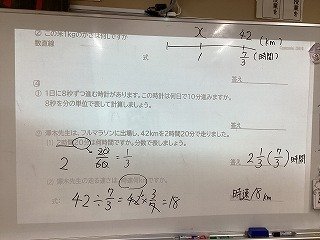 数直線
x 42 (km)
式 1 7/3 (時間)
答え
④
① 1日に8秒ずつ進む時計があります。この時計は何日で10分進みますか。
8秒を分の単位で表して計算しましょう。
答え
② 澤木先生は、フルマラソンに出場し、42kmを2時間20分で走りました。
(1) 2時間20分は何時間ですか。分数で表しましょう。
2 20/60 = 1/3
答え 2 1/3 (7/3) 時間
(2) 澤木先生の走る速さは時速何km
式: 42÷7/3=42×3/7=18
時速18km